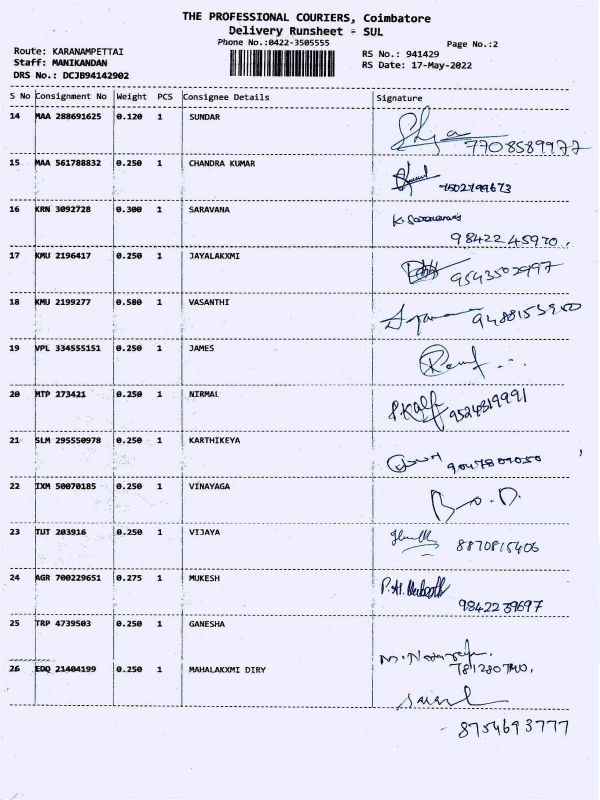 THE PROFESSIONAL COURIERS, Coimbatore
Delivery Runsheet - SUL
Phone No.:0422-3505555
Page No.:2
Route: KARANAMPETTAI
Staff: MANIKANDAN
DRS No.: DCJB94142902
RS No.: 941429
RS Date: 17-May-2022
S No Consignment No Weight PCS Consignee Details Signature
14 MAA 288691625 0.120 1 SUNDAR
7708589977
15 MAA 561788832 0.250 1 CHANDRA KUMAR
7502799673
16 KRN 3092728 0.300 1 SARAVANA
98422 45970.
17 KMU 2196417 0.250 1 JAYALAKXMI
9543507997
18 KMU 2199277 0.580 1 VASANTHI
9488153950
19 VPL 334555151 0.250 1 JAMES
20 MTP 273421 0.250 1 NIRMAL
9524819991
21 SLM 295550978 0.250 1 KARTHIKEYA
22 IXM 50070185 0.250 1 VINAYAGA
23 TUT 203916 0.250 1 VIJAYA
8870815406
24 AGR 700229651 0.275 1 MUKESH
9842239697
25 TRP 4739503 0.250 1 GANESHA
26 EDQ 21404199 0.250 1 MAHALAKXMI DIRY
8754693777